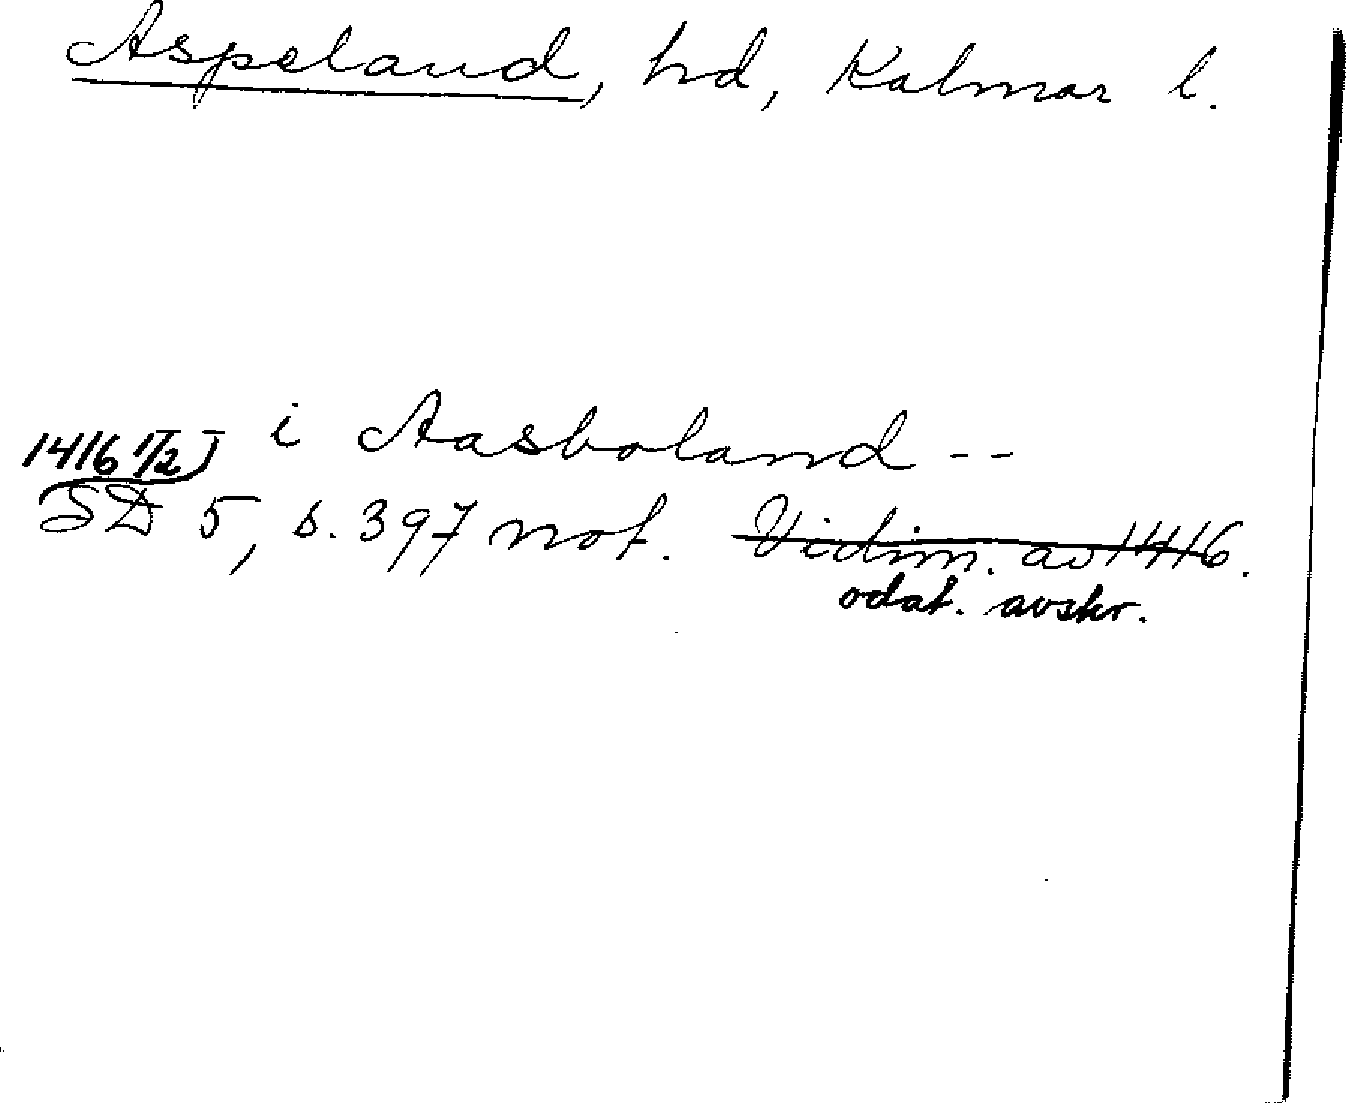 Aspeland, hd, Kalmar l.
1416 1/2 i Aasboland --
SD 5, s. 397 not. Vidim. av 1416.
odat. avskr.